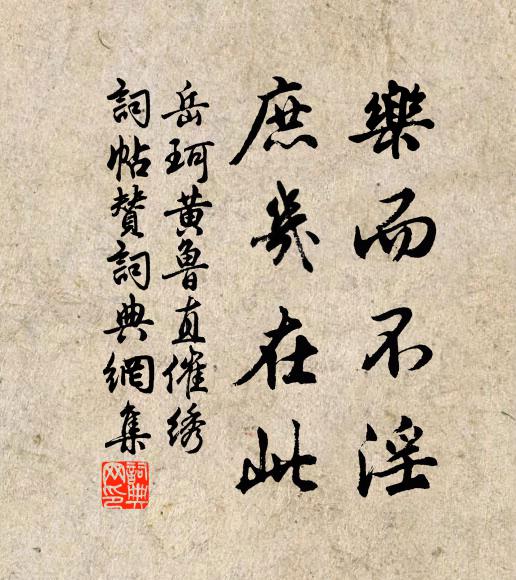 樂而不淫
庶幾在此
岳珂黄魯直催绣
詞帖贊詞典網集
詞典
网印